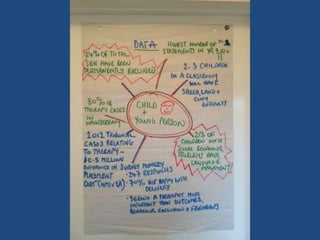 DATA
24% OF TOTAL
SEN HAVE BEEN
PERMANENTLY EXCLUDED
HIGHEST NUMBER OF
STATEMENTS IN YR 9,10
2-3 CHILDREN
IN A CLASSROOM
WILL HAVE
SPEECH, LANG +
COMM
DIFFICULTY
80% OF
THERAPY CASES
IN MAINSTREAM
CHILD
+
YOUNG PERSON
2/3 OF
CHILDREN WITH
BEHAVIOUR
PROBLEMS HAVE
LANGUAGE
IMPAIRMENT
2012 TRIBUNAL
CASES RELATING
TO THERAPY -
DIFFERENCE IN
PLACEMENT
COST
SURVEY MONKEY
- 247 RESPONSES
- 70% NOT HAPPY WITH
DELIVERY
- SEEING A THERAPIST MORE
IMPORTANT THAN OUTCOMES,
BEHAVIOUR, EXCLUSION + FRIENDSHIPS